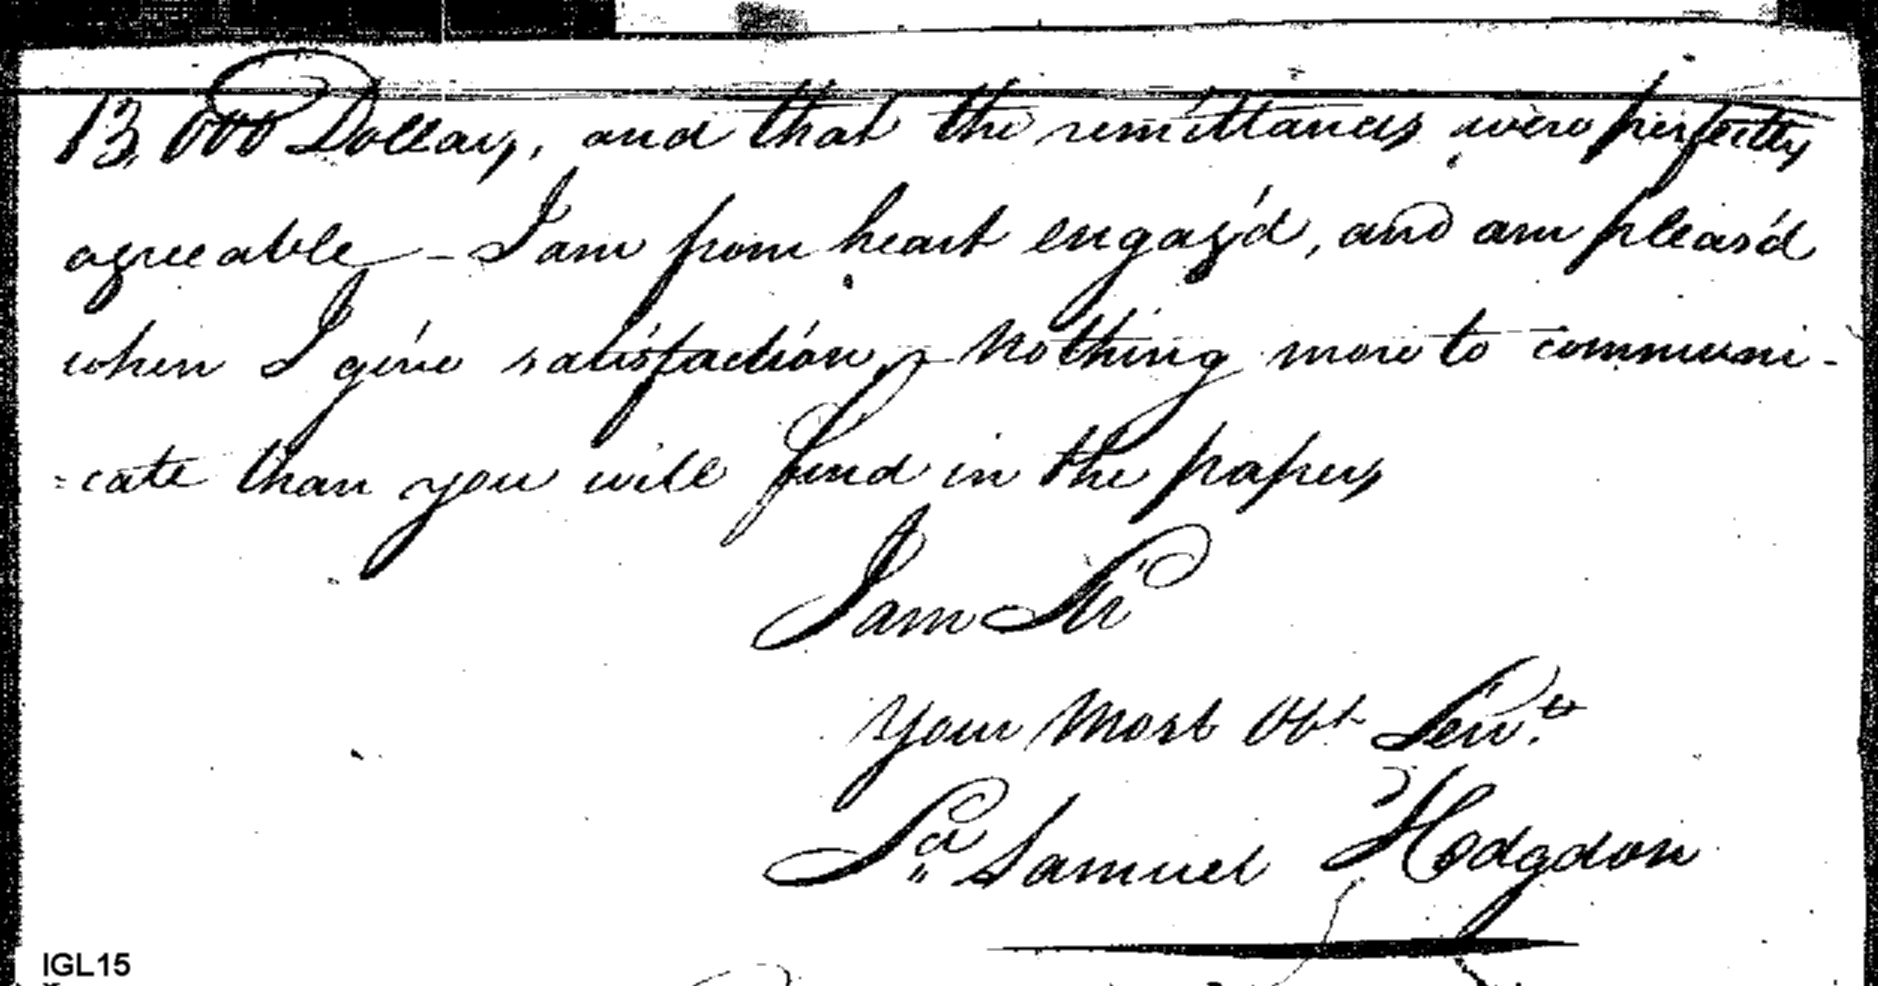 13,000 Dollars, and that the remittances were perfectly
agreeable - I am from heart engag'd, and am pleas'd
when I give satisfaction, - Nothing more to communi-
=cate than you will find in the papers
I am Sir
Your Most Obt Servt.
Sd. Samuel Hodgdon
IGL15